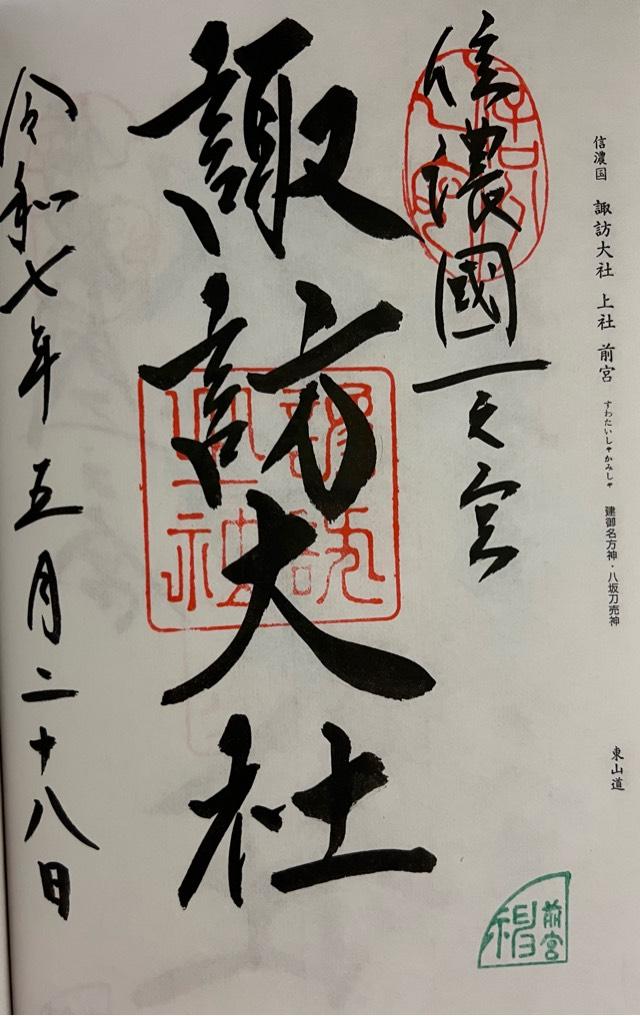 信濃国 諏訪大社 上社 前宮 すわたいしゃかみしゃ 建御名方神・八坂刀売神 東山道
信濃國一之宮
諏訪大社
令和七年五月二十八日
前宮